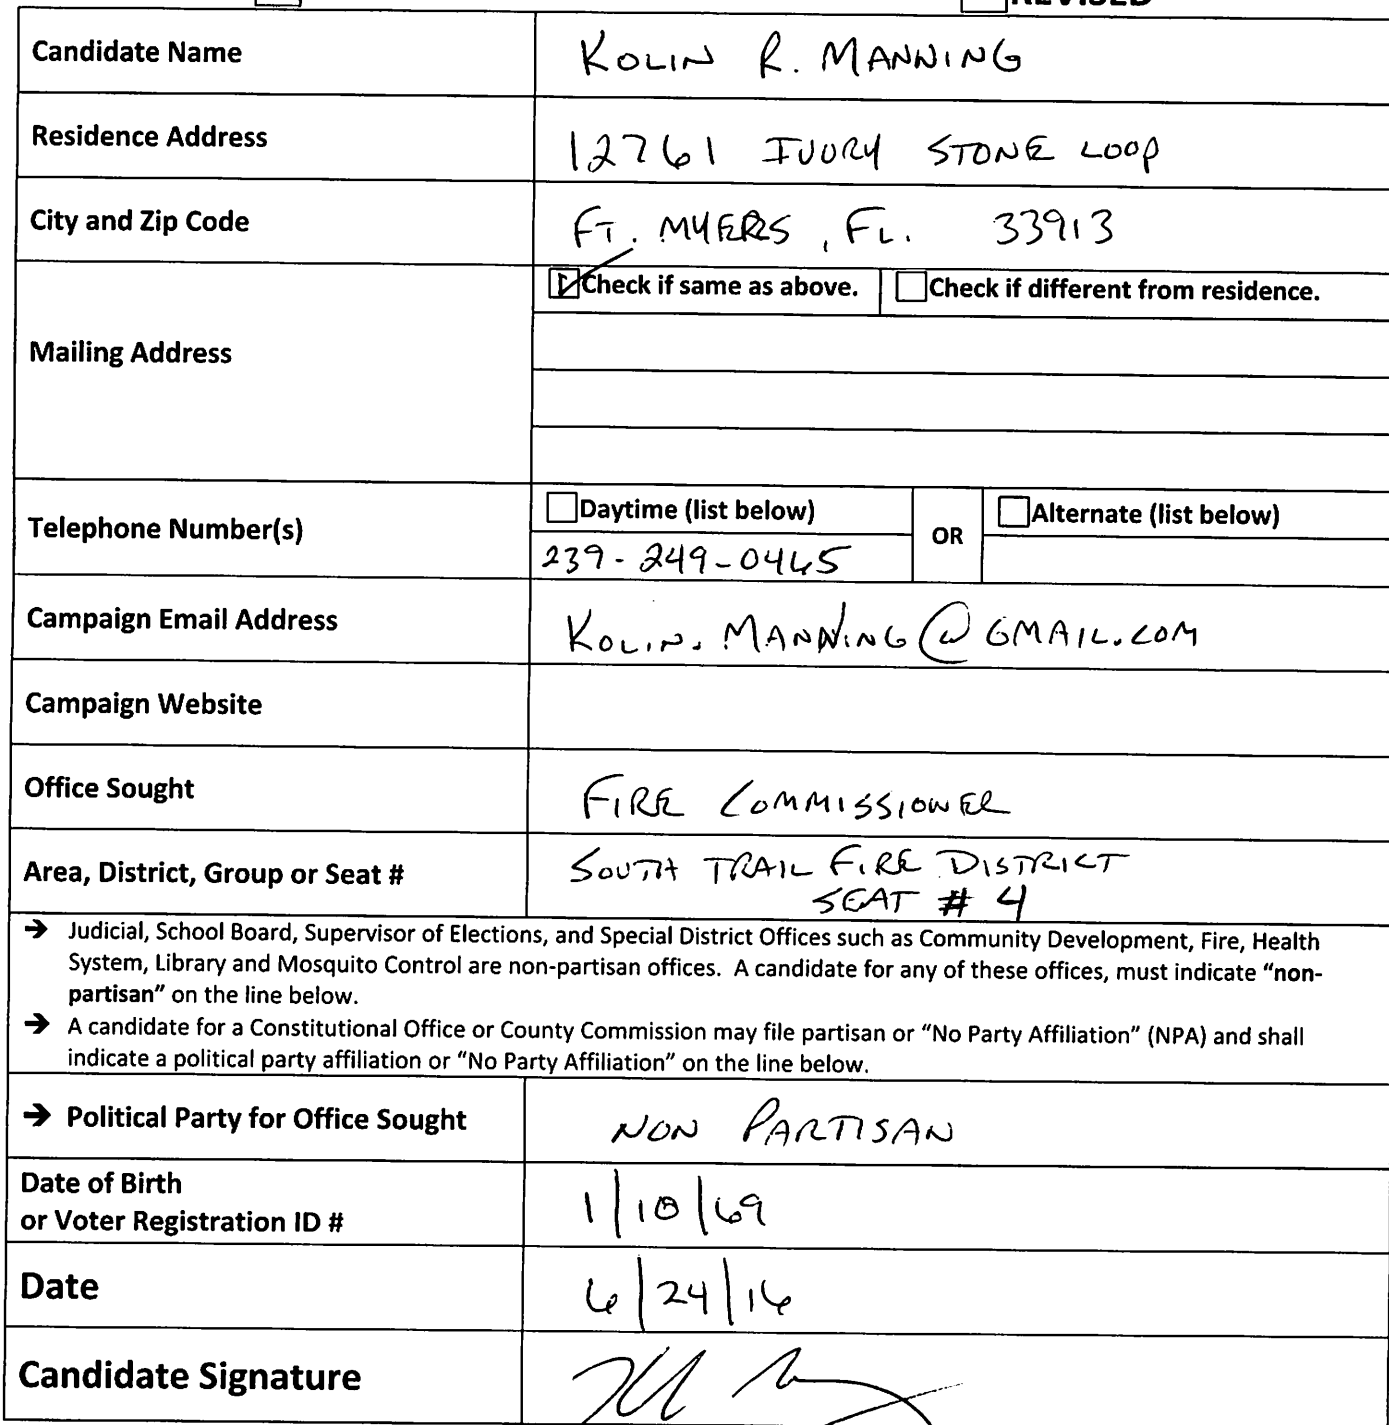 REVISED
Candidate Name KOLIN R. MANNING
Residence Address 12761 IVORY STONE LOOP
City and Zip Code FT. MYERS, FL. 33913
Check if same as above. Check if different from residence.
Mailing Address
Daytime (list below) OR Alternate (list below)
Telephone Number(s)
239-249-0465
Campaign Email Address KOLIN.MANNING@GMAIL.COM
Campaign Website
Office Sought FIRE COMMISSIONER
Area, District, Group or Seat # SOUTH TRAIL FIRE DISTRICT
SEAT # 4
→ Judicial, School Board, Supervisor of Elections, and Special District Offices such as Community Development, Fire, Health
System, Library and Mosquito Control are non-partisan offices. A candidate for any of these offices, must indicate “non-
partisan” on the line below.
→ A candidate for a Constitutional Office or County Commission may file partisan or “No Party Affiliation” (NPA) and shall
indicate a political party affiliation or “No Party Affiliation” on the line below.
→ Political Party for Office Sought NON PARTISAN
Date of Birth
or Voter Registration ID # 1/10/69
Date 6/24/16
Candidate Signature